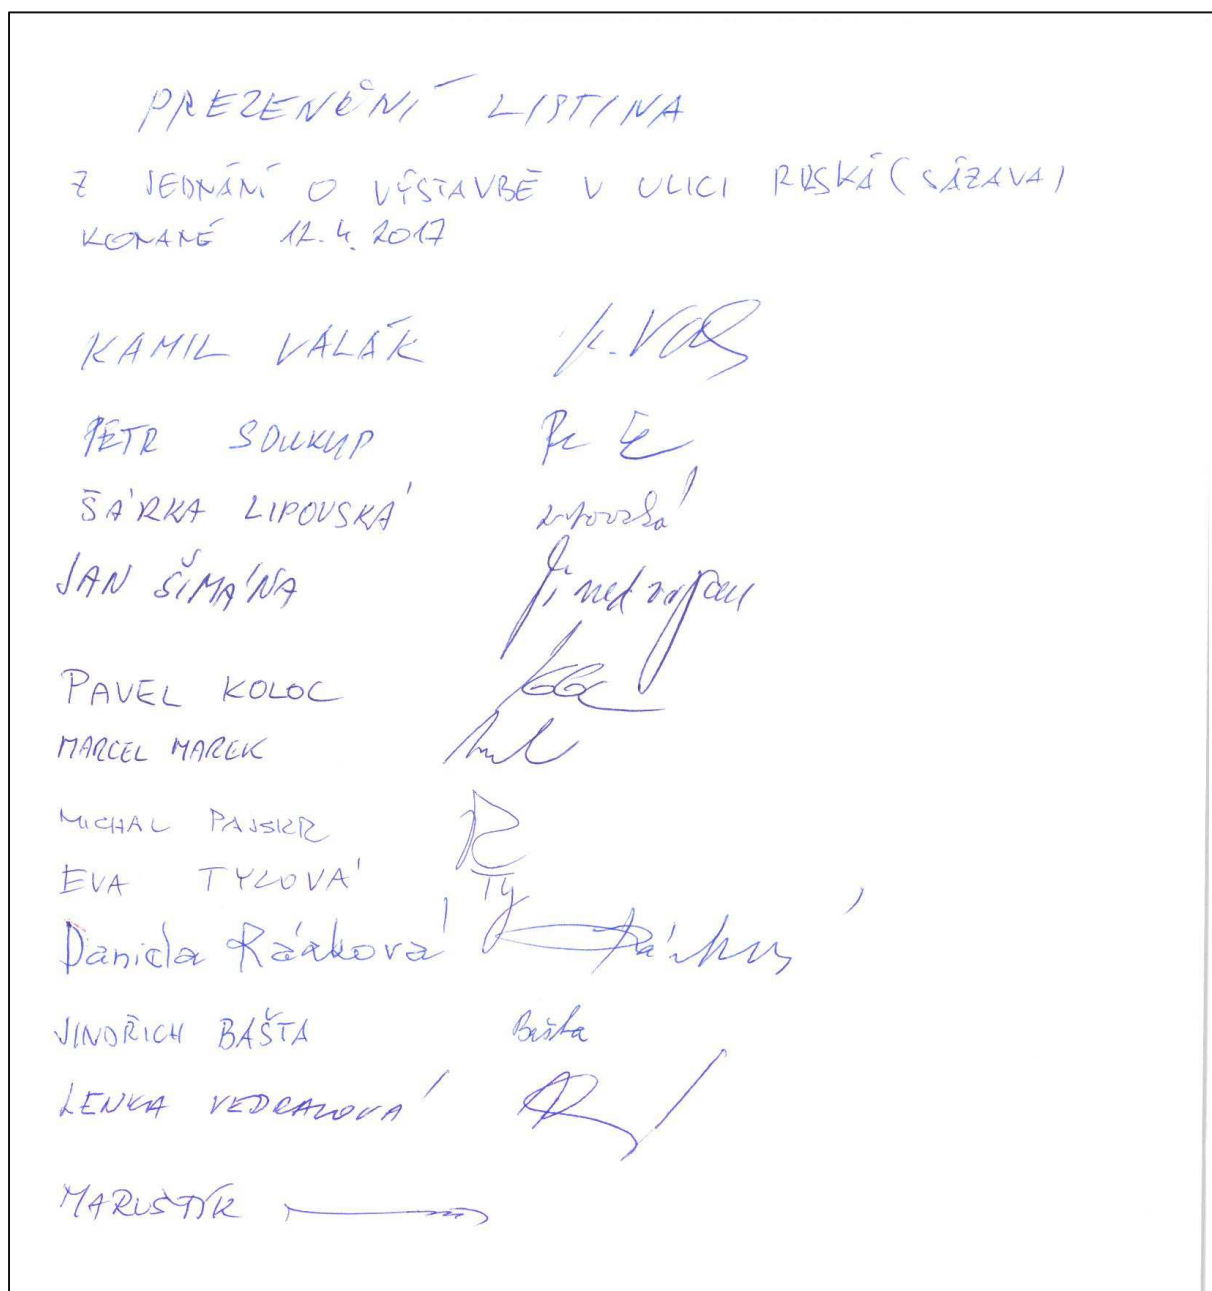 PREZENČNÍ LISTINA
Z JEDNÁNÍ O VÝSTAVBĚ V ULICI RUSKÁ (SÁZAVA)
KONANÉ 12.4.2017
KAMIL VALÁK K. Val
PETR SOUKUP
ŠÁRKA LIPOVSKÁ Lipovská
JAN ŠIMÁNA
PAVEL KOLOC Koloc
MARCEL MAREK
MICHAL PAJSKR
EVA TYLOVÁ Ty
Daniela Rázková
JINDŘICH BAŠTA Bašta
LENKA VEDRALOVÁ